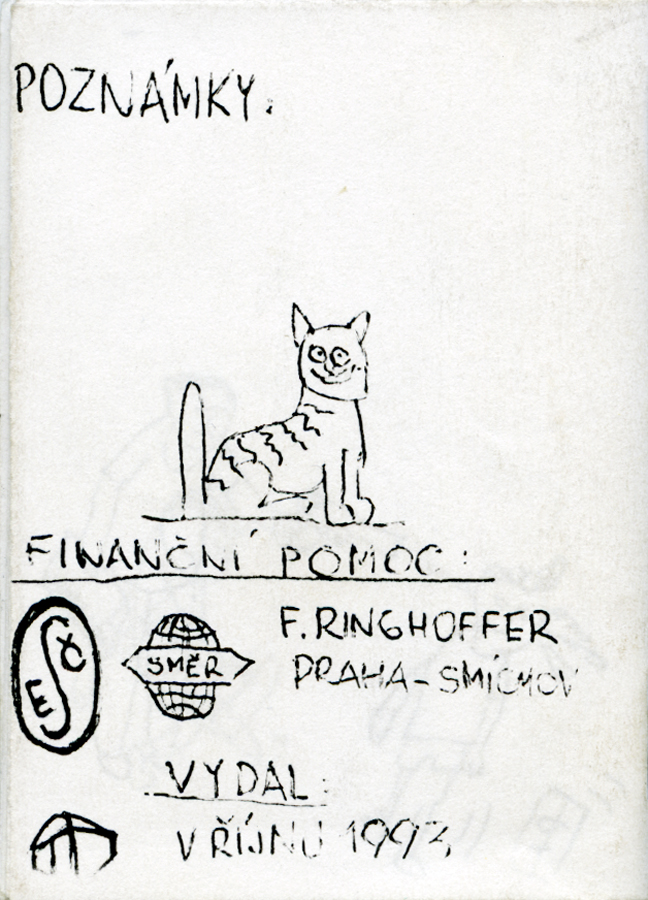 POZNÁMKY:
FINANČNÍ POMOC:
ESČ
SMĚR
F. RINGHOFFER
PRAHA - SMÍCHOV
VYDAL:
V ŘÍJNU 1993